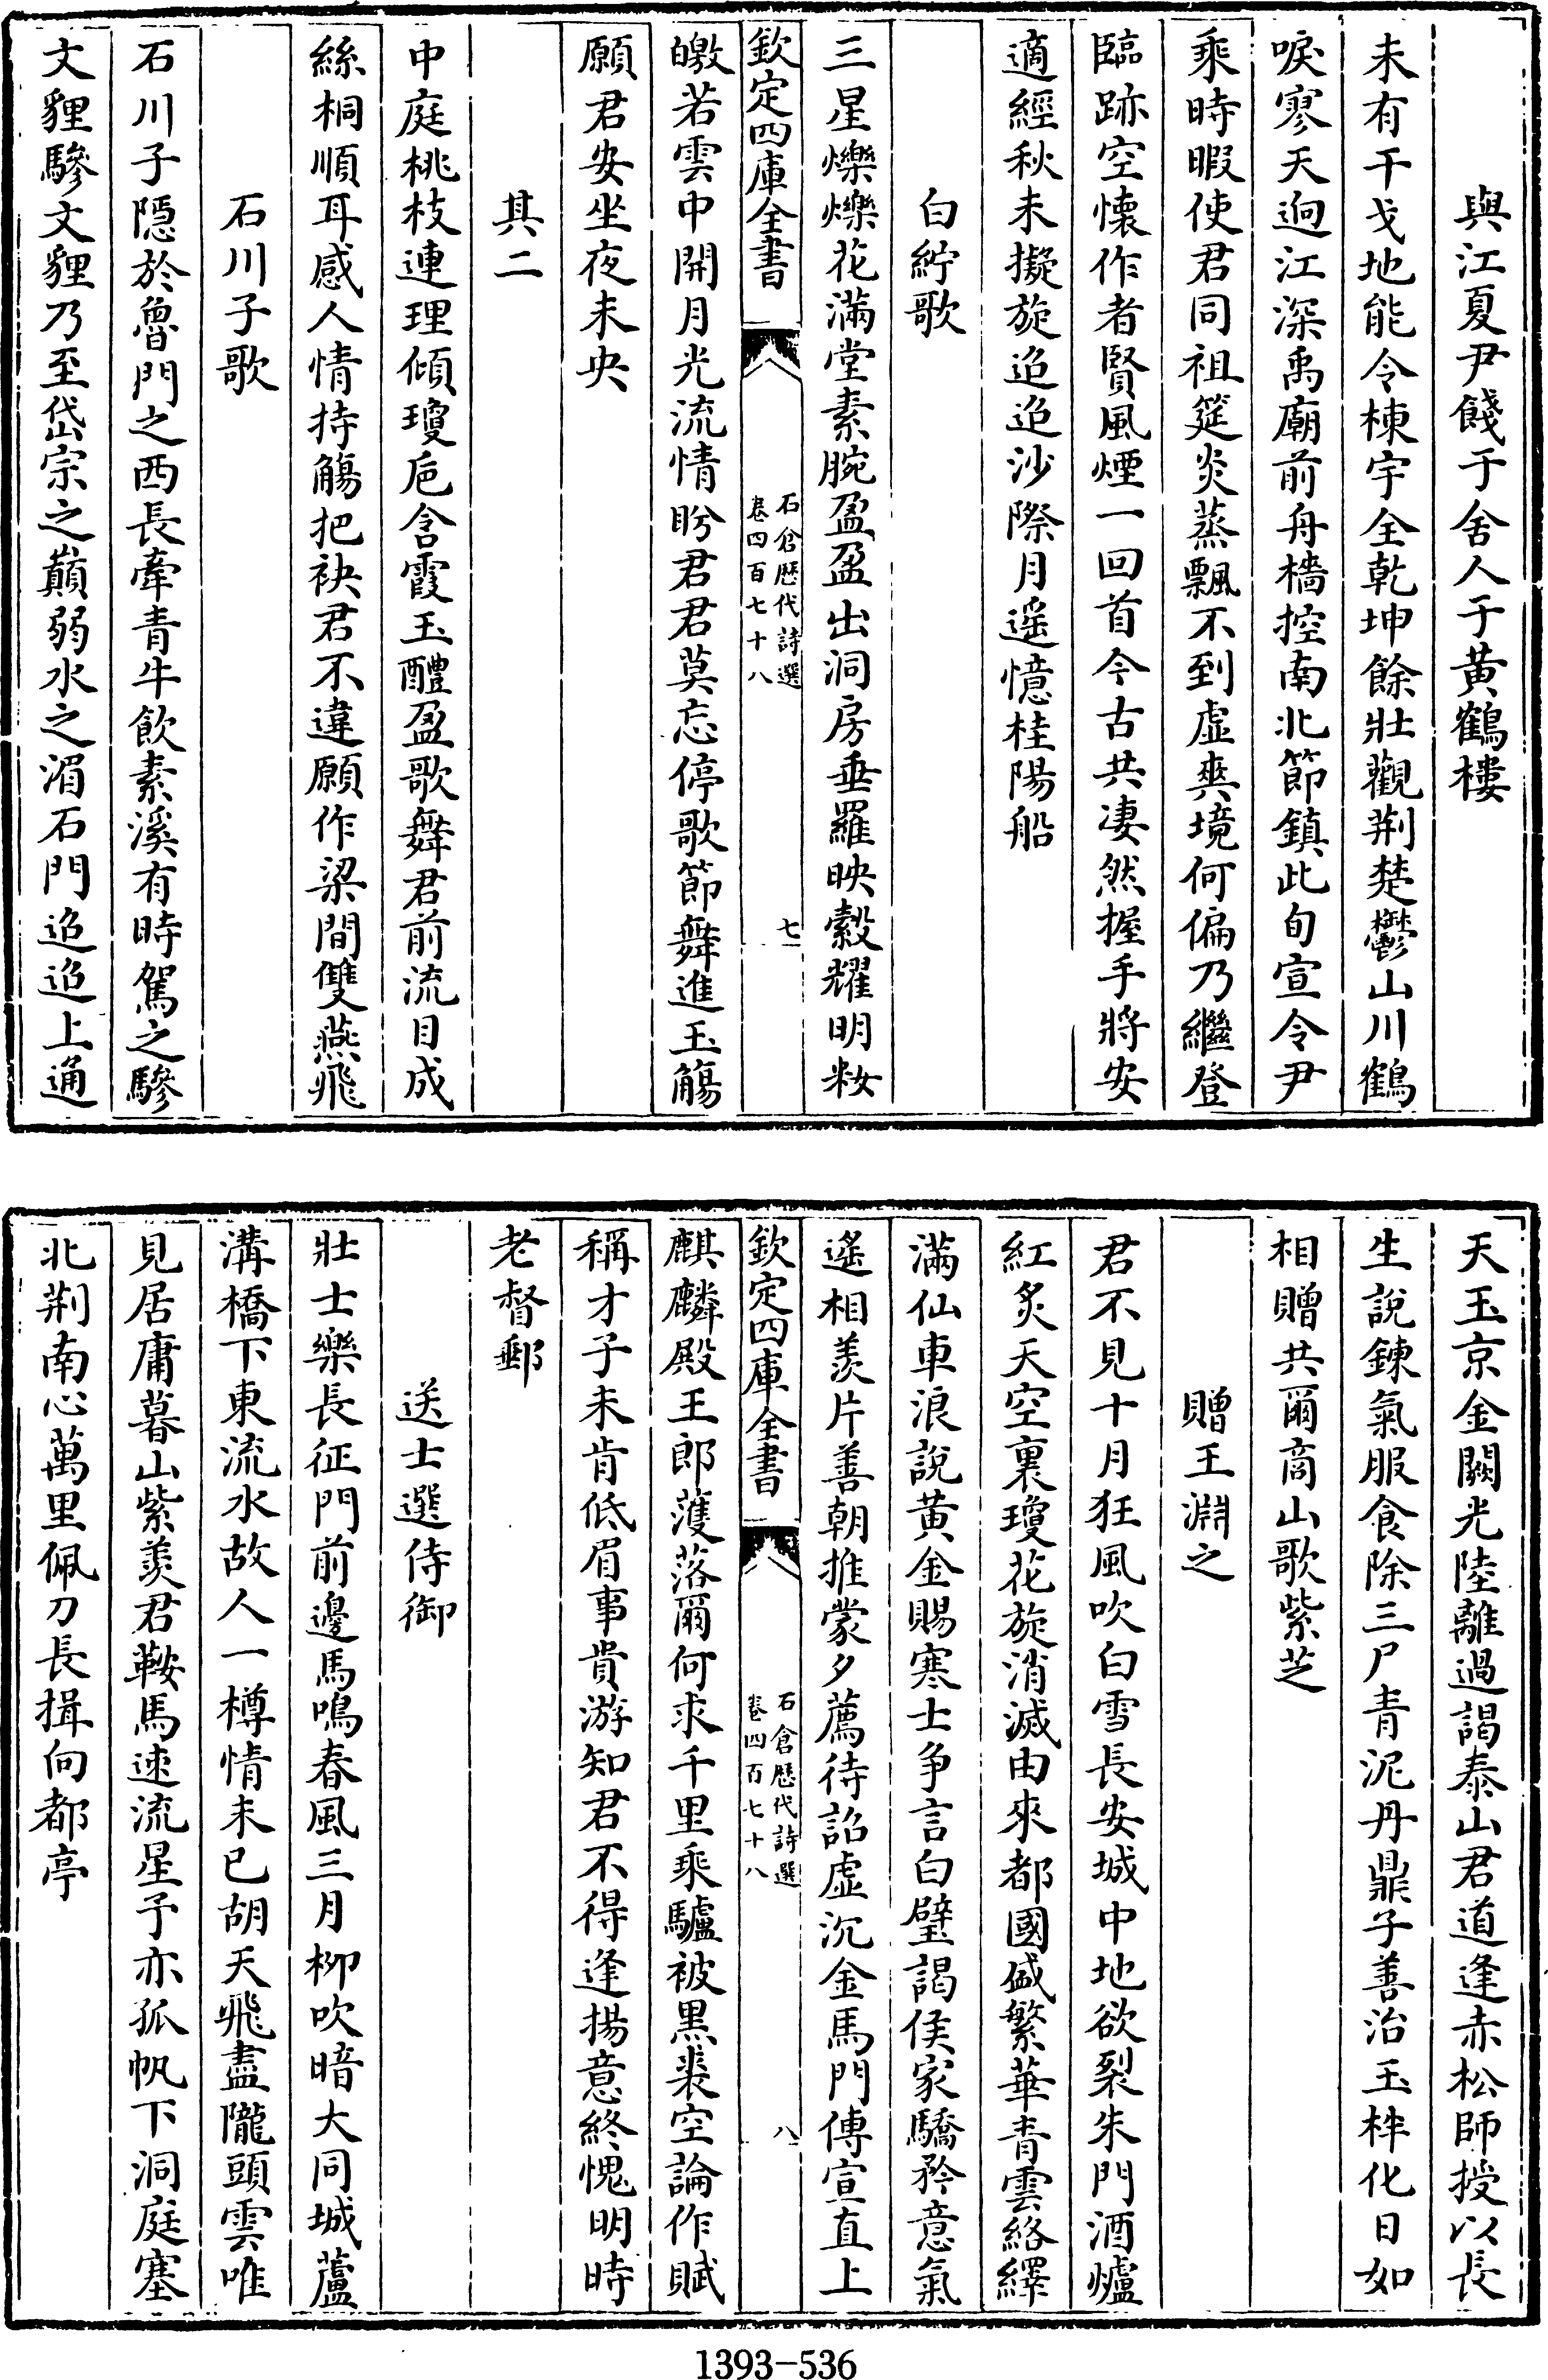 與江夏尹餞于舍人于黃鶴樓
未有干戈地能令棟宇全乾坤餘壯觀荆楚鬱山川鶴
唳寥天迥江深禹廟前舟檣控南北節鎮此旬宣令尹
乘時暇使君同祖筵炎蒸飄不到虛爽境何偏乃繼登
臨跡空懷作者賢風煙一回首今古共凄然握手將安
適經秋未擬旋迢迢沙際月遥憶桂陽船
白紵歌
三星爍爍花滿堂素腕盈盈出洞房垂羅映縠耀明粧
欽定四庫全書
石倉歷代詩選
卷四百七十八
七
皦若雲中開月光流情盻君君莫忘停歌節舞進玉觴
願君安坐夜未央
其二
中庭桃枝連理傾瓊巵含霞玉醴盈歌舞君前流目成
絲桐順耳感人情持觴把袂君不違願作梁間雙燕飛
石川子歌
石川子隱於魯門之西長牽青牛飲素溪有時駕之驂
文貍驂文貍乃至岱宗之巔弱水之湄石門迢迢上通
天玉京金闕光陸離過謁泰山君道逢赤松師授以長
生說鍊氣服食除三尸青泥丹鼎子善治玉柈化日如
相贈共爾商山歌紫芝
贈王淵之
君不見十月狂風吹白雪長安城中地欲裂朱門酒爐
紅炙天空裏瓊花旋消滅由來都國盛繁華青雲絡繹
滿仙車浪說黃金賜寒士爭言白璧謁侯家驕矜意氣
遥相羨片善朝推蒙夕薦待詔虛沉金馬門傳宣直上
欽定四庫全書
石倉歷代詩選
卷四百七十八
八
麒麟殿王郎蒦落爾何求千里乘驢被黑裘空論作賦
稱才子未肯低眉事貴游知君不得逢揚意終愧明時
老督郵
送士選侍御
壯士樂長征門前邊馬鳴春風三月柳吹暗大同城蘆
溝橋下東流水故人一樽情未已胡天飛盡隴頭雲唯
見居庸暮山紫羨君鞍馬速流星予亦孤帆下洞庭塞
北荆南心萬里佩刀長揖向都亭
1393-536